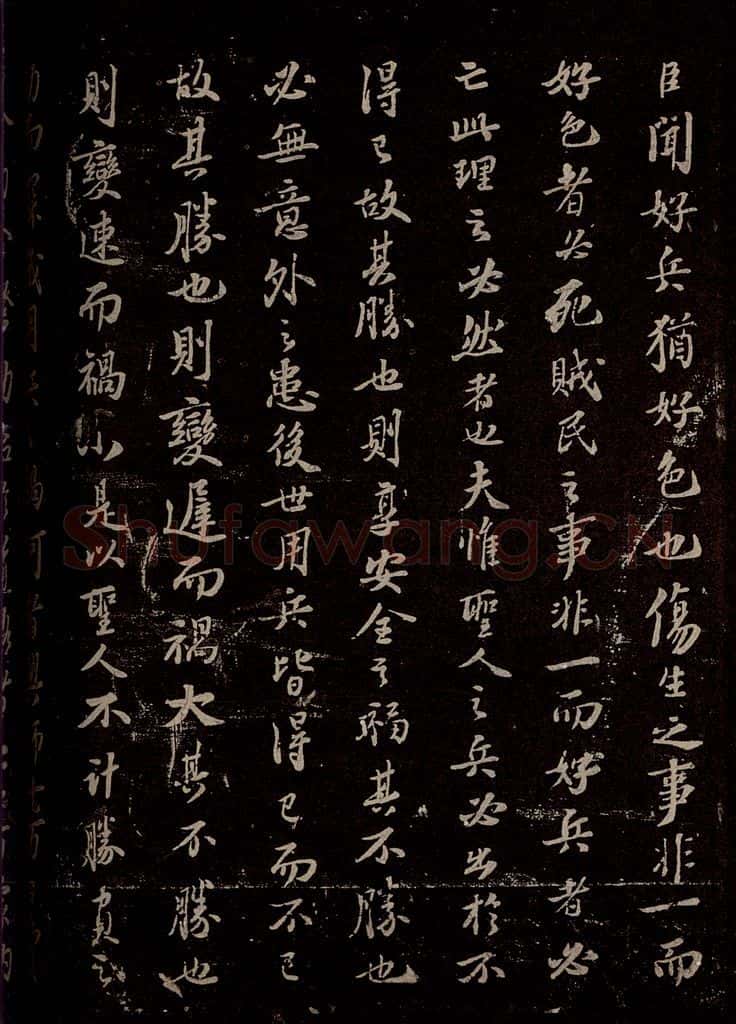 臣聞好兵猶好色也傷生之事非一而
好色者必死賊民之事非一而好兵者必
亡此理之必然者也夫惟聖人之兵必出於不
得已故其勝也則享安全之福其不勝也
必無意外之患後世用兵皆得已而不已
故其勝也則變遲而禍大其不勝也
則變速而禍小是以聖人不計勝負之
Shufawang.CN